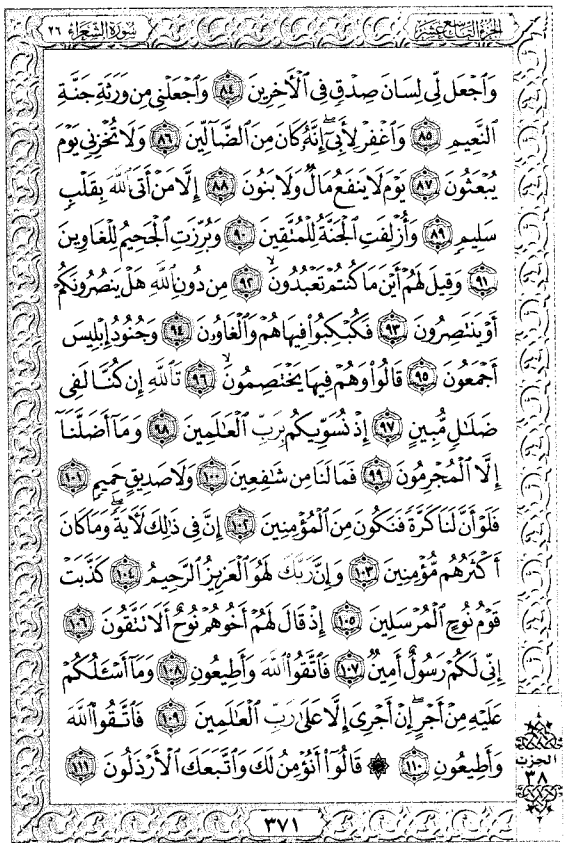 الجزء التاسع عشر
سورة الشعراء ٢٦
وَٱجْعَل لِّى لِسَانَ صِدْقٍ فِى ٱلْأَخِرِينَ ٨٤ وَٱجْعَلْنِى مِن وَرَثَةِ جَنَّةِ
ٱلنَّعِيمِ ٨٥ وَٱغْفِرْ لِأَبِىٓ إِنَّهُۥ كَانَ مِنَ ٱلضَّآلِّينَ ٨٦ وَلَا تُخْزِنِى يَوْمَ
يُبْعَثُونَ ٨٧ يَوْمَ لَا يَنفَعُ مَالٌ وَلَا بَنُونَ ٨٨ إِلَّا مَنْ أَتَى ٱللَّهَ بِقَلْبٍ
سَلِيمٍ ٨٩ وَأُزْلِفَتِ ٱلْجَنَّةُ لِلْمُتَّقِينَ ٩٠ وَبُرِّزَتِ ٱلْجَحِيمُ لِلْغَاوِينَ
٩١ وَقِيلَ لَهُمْ أَيْنَ مَا كُنتُمْ تَعْبُدُونَ ٩٢ مِن دُونِ ٱللَّهِ هَلْ يَنصُرُونَكُمْ
أَوْ يَنتَصِرُونَ ٩٣ فَكُبْكِبُوا۟ فِيهَا هُمْ وَٱلْغَاوُۥنَ ٩٤ وَجُنُودُ إِبْلِيسَ
أَجْمَعُونَ ٩٥ قَالُوا۟ وَهُمْ فِيهَا يَخْتَصِمُونَ ٩٦ تَٱللَّهِ إِن كُنَّا لَفِى
ضَلَٰلٍ مُّبِينٍ ٩٧ إِذْ نُسَوِّيكُم بِرَبِّ ٱلْعَٰلَمِينَ ٩٨ وَمَآ أَضَلَّنَآ
إِلَّا ٱلْمُجْرِمُونَ ٩٩ فَمَا لَنَا مِن شَٰفِعِينَ ١٠٠ وَلَا صَدِيقٍ حَمِيمٍ ١٠١
فَلَوْ أَنَّ لَنَا كَرَّةً فَنَكُونَ مِنَ ٱلْمُؤْمِنِينَ ١٠٢ إِنَّ فِى ذَٰلِكَ لَأَيَةً وَمَا كَانَ
أَكْثَرُهُم مُّؤْمِنِينَ ١٠٣ وَإِنَّ رَبَّكَ لَهُوَ ٱلْعَزِيزُ ٱلرَّحِيمُ ١٠٤ كَذَّبَتْ
قَوْمُ نُوحٍ ٱلْمُرْسَلِينَ ١٠٥ إِذْ قَالَ لَهُمْ أَخُوهُمْ نُوحٌ أَلَا تَتَّقُونَ ١٠٦
إِنِّى لَكُمْ رَسُولٌ أَمِينٌ ١٠٧ فَٱتَّقُوا۟ ٱللَّهَ وَأَطِيعُونِ ١٠٨ وَمَآ أَسْـَٔلُكُمْ
عَلَيْهِ مِنْ أَجْرٍ إِنْ أَجْرِىَ إِلَّا عَلَىٰ رَبِّ ٱلْعَٰلَمِينَ ١٠٩ فَٱتَّقُوا۟ ٱللَّهَ
وَأَطِيعُونِ ١١٠ ۞ قَالُوٓا۟ أَنُؤْمِنُ لَكَ وَٱتَّبَعَكَ ٱلْأَرْذَلُونَ ١١١
الحزب
٣٨
٣٧١